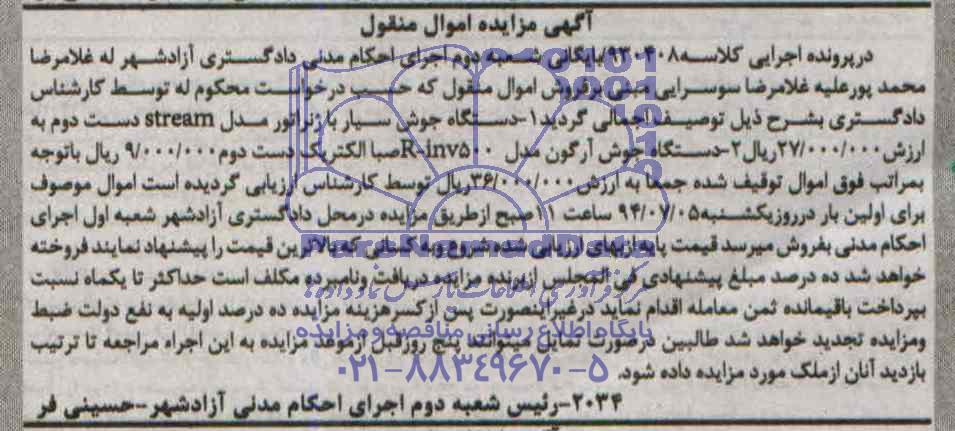 آگهی مزایده اموال منقول
درپرونده اجرایی کلاسه۹۳۰۴۰۸/بایگانی شعبه دوم اجرای احکام مدنی دادگستری آزادشهر له غلامرضا
محمد پورعلیه غلامرضا سوسرایی مبنی برفروش اموال منقول که حسب درخواست محکوم له توسط کارشناس
دادگستری بشرح ذیل توصیف اجمالی گردید۱-دستگاه جوش سیار با ژنراتور مدل stream دست دوم به
ارزش۲۷/۰۰۰/۰۰۰ریال۲-دستگاه جوش آرگون مدل R-inv۵۰۰صبا الکتریک دست دوم۹/۰۰۰/۰۰۰ ریال باتوجه
بمراتب فوق اموال توقیف شده جمعا به ارزش۳۶/۰۰۰/۰۰۰ریال توسط کارشناس ارزیابی گردیده است اموال موصوف
برای اولین بار درروزیکشنبه۹۴/۰۷/۰۵ ساعت ۱۱صبح ازطریق مزایده درمحل دادگستری آزادشهر شعبه اول اجرای
احکام مدنی بفروش میرسد قیمت پایه ازبهای ارزیابی شده شروع وبه کسانی که بالاترین قیمت را پیشنهاد نمایند فروخته
خواهد شد ده درصد مبلغ پیشنهادی فی المجلس ازبرنده مزایده دریافت ونامبرده مکلف است حداکثر تا یکماه نسبت
بپرداخت باقیمانده ثمن معامله اقدام نماید درغیراینصورت پس ازکسرهزینه مزایده ده درصد اولیه به نفع دولت ضبط
ومزایده تجدید خواهد شد طالبین درصورت تمایل میتوانند پنج روزقبل ازموعد مزایده به این اجراء مراجعه تا ترتیب
بازدید آنان ازملک مورد مزایده داده شود.
۲۰۳۴-رئیس شعبه دوم اجرای احکام مدنی آزادشهر-حسینی فر
ParsNamadData
پایگاه اطلاع رسانی مناقصه و مزایده
۰۲۱-۸۸۳۴۹۶۷۰-۵